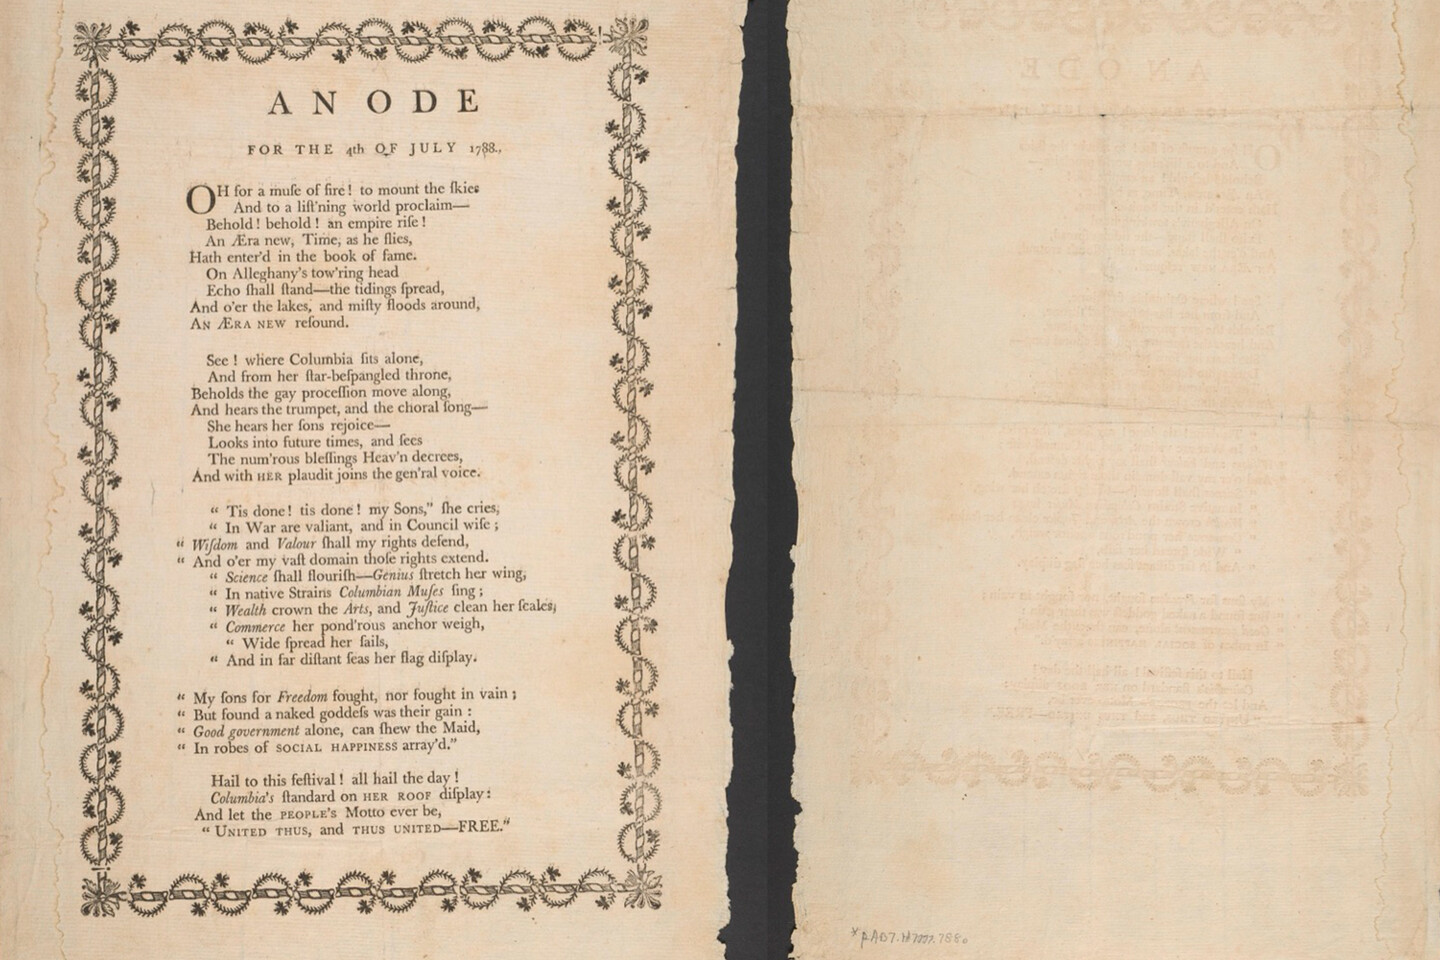 AN ODE
FOR THE 4th OF JULY 1788.
OH for a muſe of fire! to mount the ſkies
And to a liſt'ning world proclaim—
Behold! behold! an empire riſe!
An Æra new, Time, as he flies,
Hath enter'd in the book of fame.
On Alleghany's tow'ring head
Echo ſhall ſtand—the tidings ſpread,
And o'er the lakes, and miſty floods around,
AN ÆRA NEW reſound.
See! where Columbia ſits alone,
And from her ſtar-beſpangled throne,
Beholds the gay proceſſion move along,
And hears the trumpet, and the choral ſong—
She hears her ſons rejoice—
Looks into future times, and ſees
The num'rous bleſſings Heav'n decrees,
And with HER plaudit joins the gen'ral voice.
“ 'Tis done! tis done! my Sons,” ſhe cries,
“ In War are valiant, and in Council wiſe;
“ Wiſdom and Valour ſhall my rights defend,
“ And o'er my vaſt domain thoſe rights extend.
“ Science ſhall flouriſh—Genius ſtretch her wing,
“ In native Strains Columbian Muſes ſing;
“ Wealth crown the Arts, and Juſtice clean her ſcales,
“ Commerce her pond'rous anchor weigh,
“ Wide ſpread her ſails,
“ And in far diſtant ſeas her flag diſplay.
“ My ſons for Freedom fought, nor fought in vain;
“ But found a naked goddeſs was their gain:
“ Good government alone, can ſhew the Maid,
“ In robes of SOCIAL HAPPINESS array'd.”
Hail to this feſtival! all hail the day!
Columbia's ſtandard on HER ROOF diſplay:
And let the PEOPLE'S Motto ever be,
“ UNITED THUS, and THUS UNITED—FREE.”